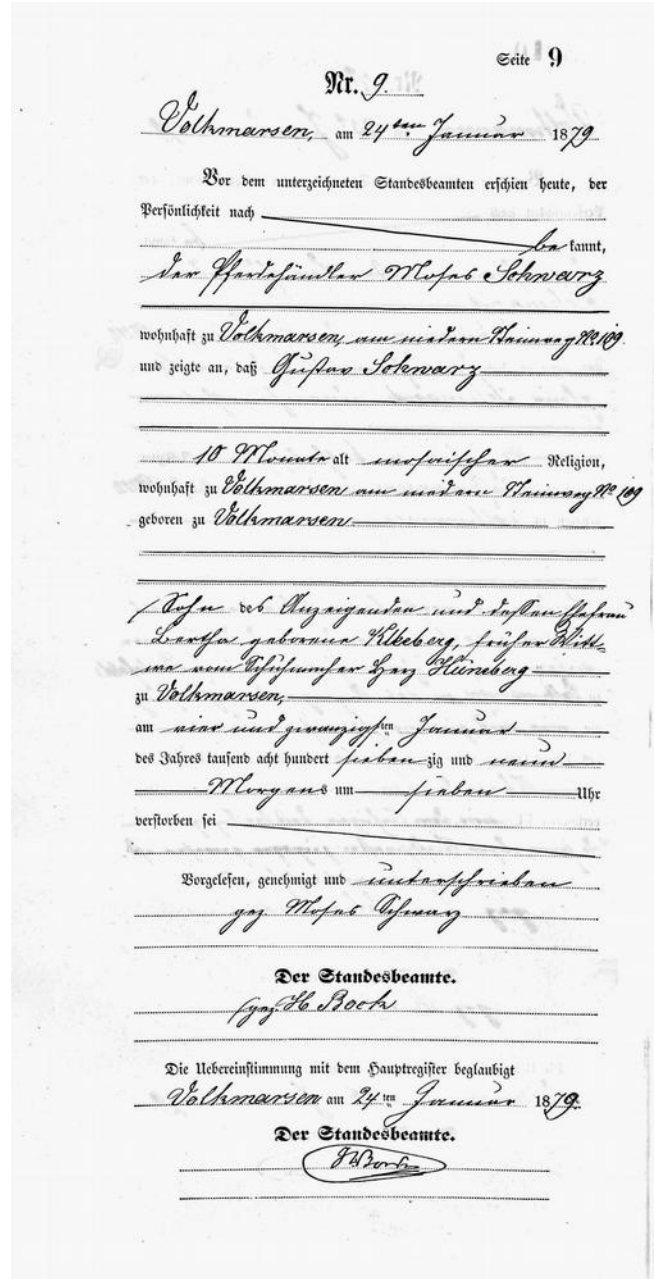 Seite 9
Nr. 9.
Volkmarsen, am 24ten Januar 1879
Vor dem unterzeichneten Standesbeamten erschien heute, der
Persönlichkeit nach
be kannt,
der Pferdehändler Moses Schwarz
wohnhaft zu Volkmarsen, am niedern Steinweg No 109.
und zeigte an, daß Gustav Schwarz
10 Monate alt mosaischer Religion,
wohnhaft zu Volkmarsen am niedern Steinweg No 109
geboren zu Volkmarsen
Sohn des Anzeigenden und dessen Ehefrau
Bertha geborene Kleeberg, früher Witt-
we vom Schuhmacher Herz Hüneberg
zu Volkmarsen,
am vier und zwanzigsten Januar
des Jahres tausend acht hundert sieben zig und neun
Morgens um sieben Uhr
verstorben sei
Vorgelesen, genehmigt und unterschrieben
gez. Moses Schwarz
Der Standesbeamte.
gez. H Bock
Die Uebereinstimmung mit dem Hauptregister beglaubigt
Volkmarsen am 24ten Januar 1879.
Der Standesbeamte.
HBock